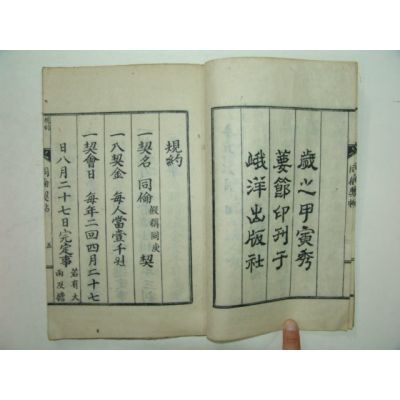 歲之甲寅秀
葽節印刊于
峨洋出版社
規約
一契名 同倫 假稱同庚 契
一入契金 每人當壹千원
一契會日 每年二回四月二十七
日八月二十七日完定事 若有大
雨及
五